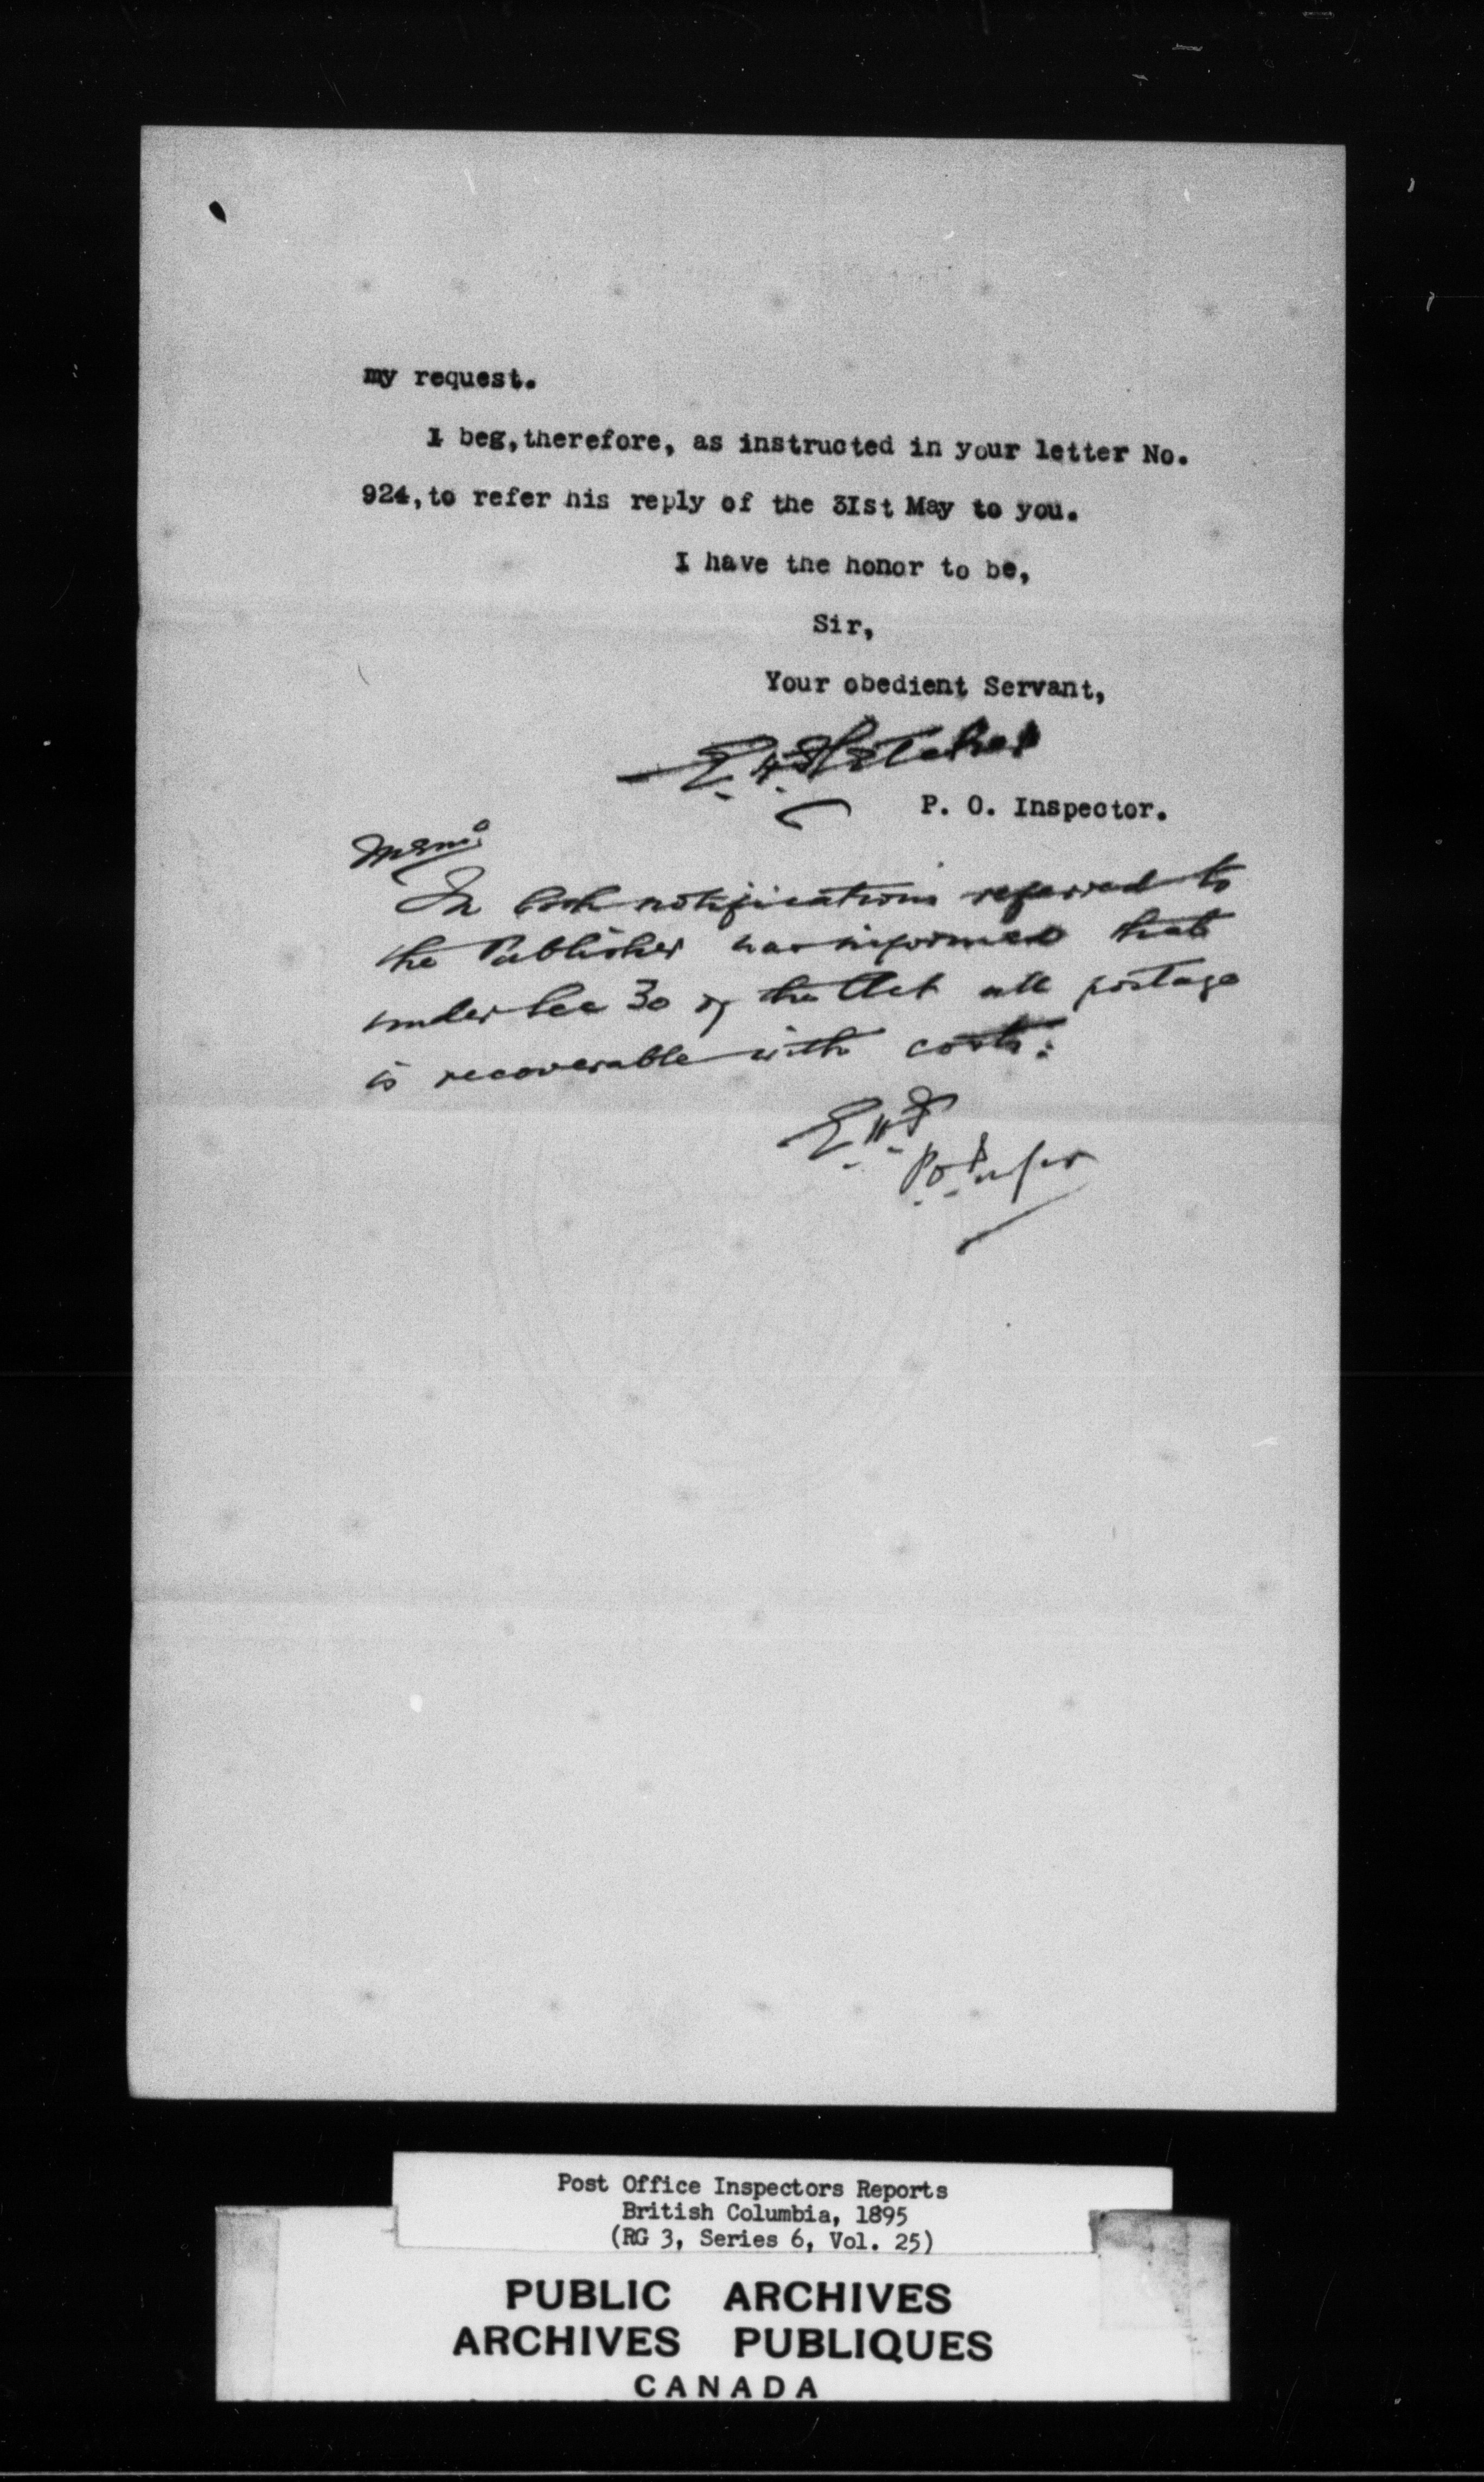 my request.
I beg,therefore, as instructed in your letter No.
924,to refer his reply of the 3Ist May to you.
I have the honor to be,
Sir,
Your obedient Servant,
E. H. Fletcher
P. O. Inspector.
Memo
In both notifications referred to
the Publisher was informed that
under Sec 30 of the Act all postage
is recoverable with costs.
E.H.F
P.O. Inspr
Post Office Inspectors Reports
British Columbia, 1895
(RG 3, Series 6, Vol. 25)
PUBLIC ARCHIVES
ARCHIVES PUBLIQUES
CANADA